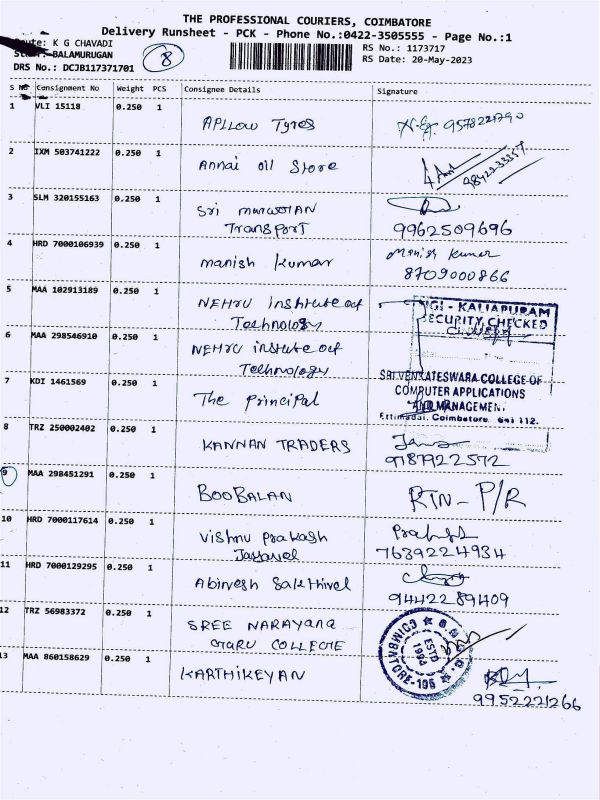 THE PROFESSIONAL COURIERS, COIMBATORE
Delivery Runsheet - PCK - Phone No.:0422-3505555 - Page No.:1
Route: K G CHAVADI
BALAMURUGAN
DRS No.: DCJB117371701
8
RS No.: 1173717
RS Date: 20-May-2023
S No Consignment No Weight PCS Consignee Details Signature
1 VLI 15118 0.250 1 APLLOW Tyres 9578221790
2 IXM 503741222 0.250 1 Annai oil Store 9842233357
3 SLM 320155163 0.250 1 Sri
Transport 9962509696
4 HRD 7000106939 0.250 1 manish kumar Manish Kumar
8709000866
5 MAA 102913189 0.250 1 NEHrU Institute of
Technology
KALIAPURAM
SECURITY CHECKED
6 MAA 298546910 0.250 1 NEHrU instute of
Technology
7 KDI 1461569 0.250 1 The Principal
SRI VENKATESWARA COLLEGE OF
COMPUTER APPLICATIONS
AND MANAGEMENT,
Ettimadai, Coimbatore. 641 112.
8 TRZ 250002402 0.250 1 KANNAN TRADERS
9787922572
9 MAA 298451291 0.250 1 BOOBALAN RTN- P/R
10 HRD 7000117614 0.250 1 Vishnu Prakash
7639224934
11 HRD 7000129295 0.250 1 Abinesh Sakthivel
9442289409
12 TRZ 56983372 0.250 1 SREE NARAYana
GURU COLLEGE
COIMBATORE-105
ESTD
1994
13 MAA 860158629 0.250 1 KARTHIKEYAN
9952221266